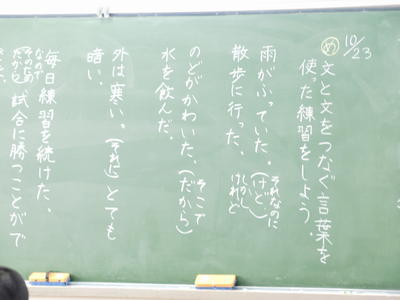 10/23
め 文と文をつなぐ言葉を
使った練習をしよう。
雨がふっていた。(けど)
それなのに
しかし
けれど
散歩に行った。
のどがかわいた。(だから)
そこで
水を飲んだ。
外は寒い。(それに)とても
暗い。
毎日練習を続けた。
なので
そのため
だから
試合に勝つことがで
きた。